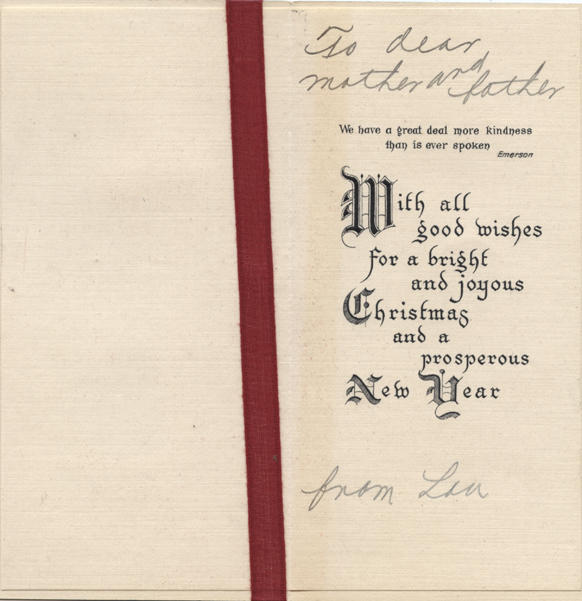 To dear
mother and father
We have a great deal more kindness
than is ever spoken
Emerson
With all
good wishes
for a bright
and joyous
Christmas
and a
prosperous
New Year
from Lou